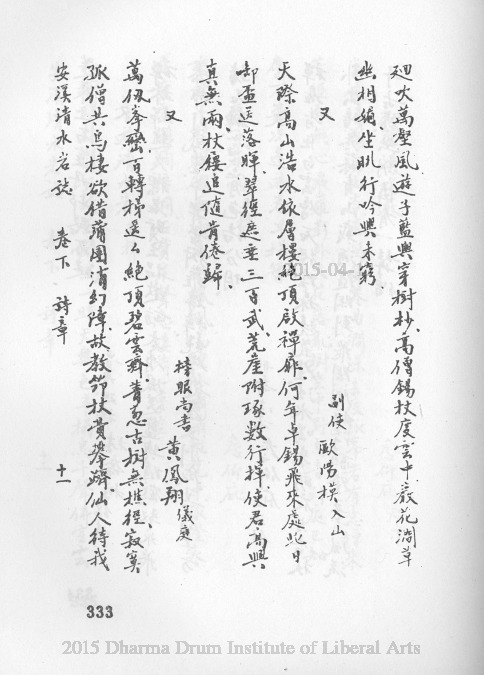 迴吹萬壑風遊子藍輿穿樹杪高僧錫杖度雲中巖花澗草
幽相媚坐眺行吟興未窮
又
副使 歐陽模入山
天際高山浩水依層樓絕頂啟禪扉何年卓錫飛來處此日
啣盃送落暉翠徑遮垂三百武荒崖附琢數行揮使君高興
真無兩杖履追隨肯倦歸
又
榜眼尚書 黃鳳翔儀庭
萬仞峯巒百轉梯遙遙絕頂碧雲齊菁葱古樹無樵徑寂寞
孤僧共鳥棲欲借蒲團消幻障故教筇杖費攀躋仙人待我
安溪清水岩誌 卷下 詩章 十一
333
2015-04-
2015 Dharma Drum Institute of Liberal Arts